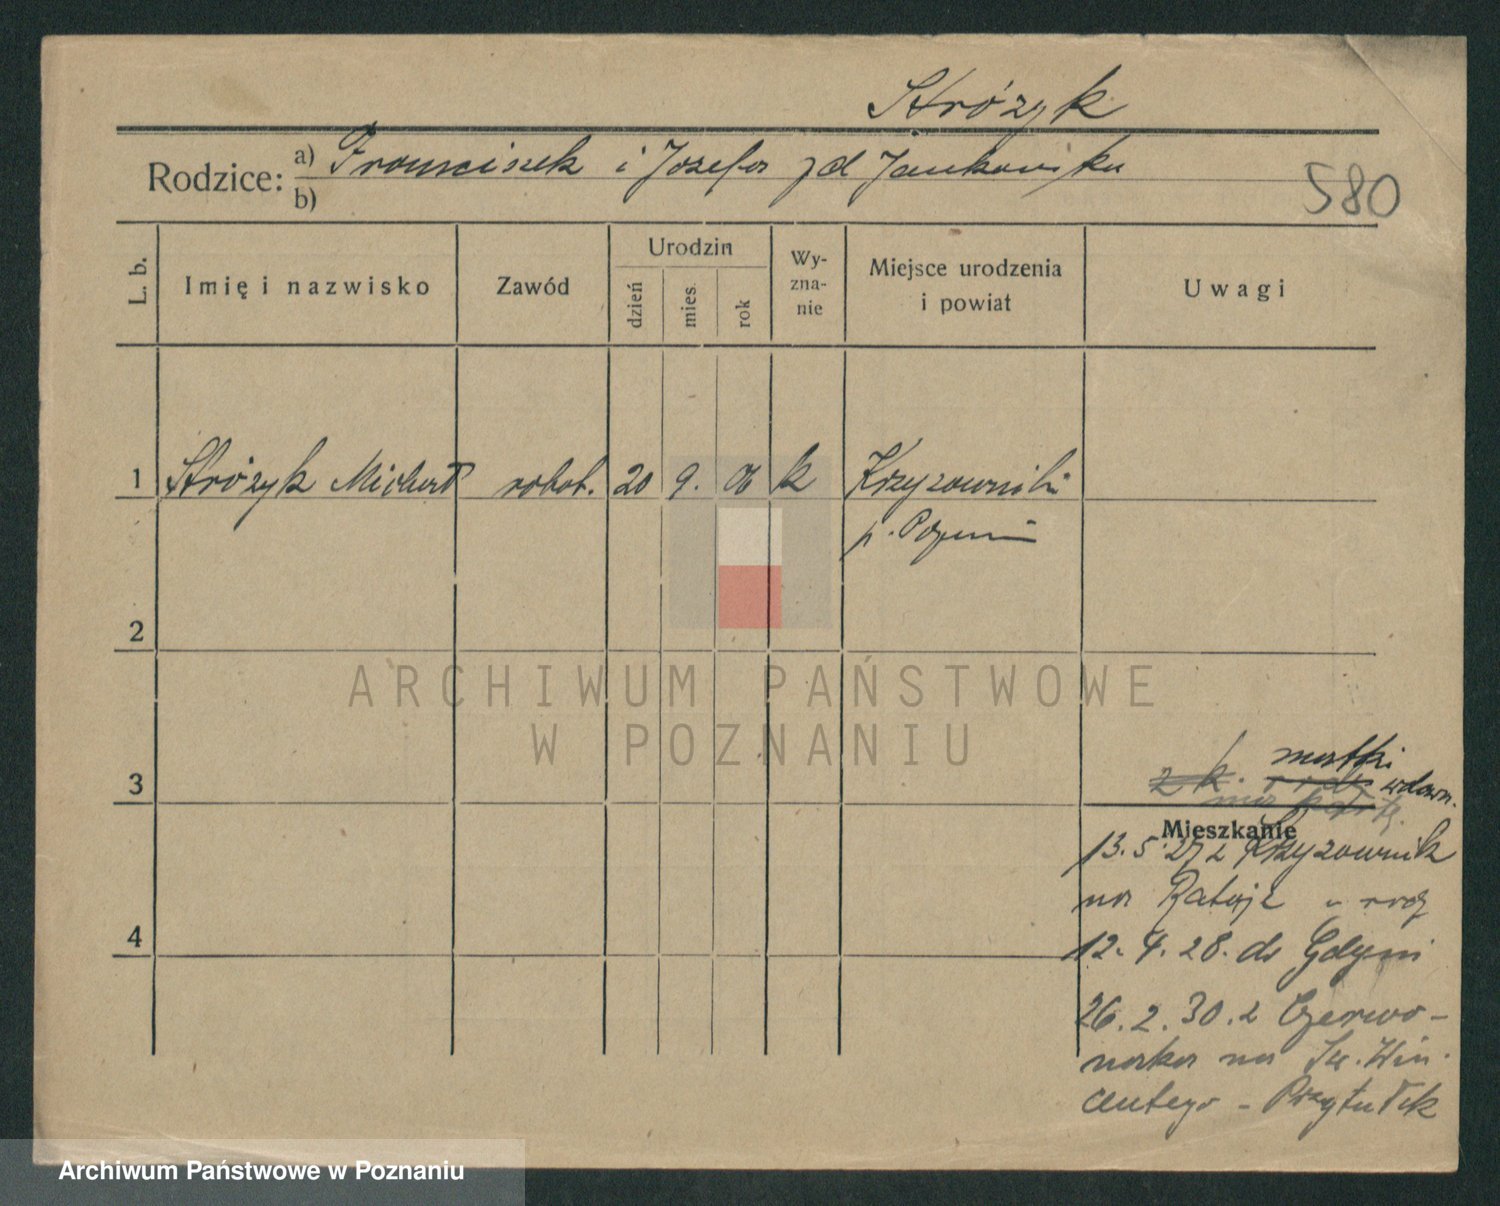 Stróżyk
Rodzice: a) Franciszek i Józefa zd Jankowska
b)
580
L. b.
Imię i nazwisko
Zawód
Urodzin
dzień
mies.
rok
Wy-
zna-
nie
Miejsce urodzenia
i powiat
Uwagi
1 Stróżyk Michał robot. 20 9. 06 k Krzyżowniki
p. Poznań
2
ARCHIWUM PAŃSTWOWE
W POZNANIU
3
matki
z k. wdown.
Mieszkanie
13.5.27 z Krzyżownik
na Rataje u rodz
12.4.28. do Gdyni
26.2.30. z Czerwo-
naka na Św. Win-
centego - Przytułek
4
Archiwum Państwowe w Poznaniu